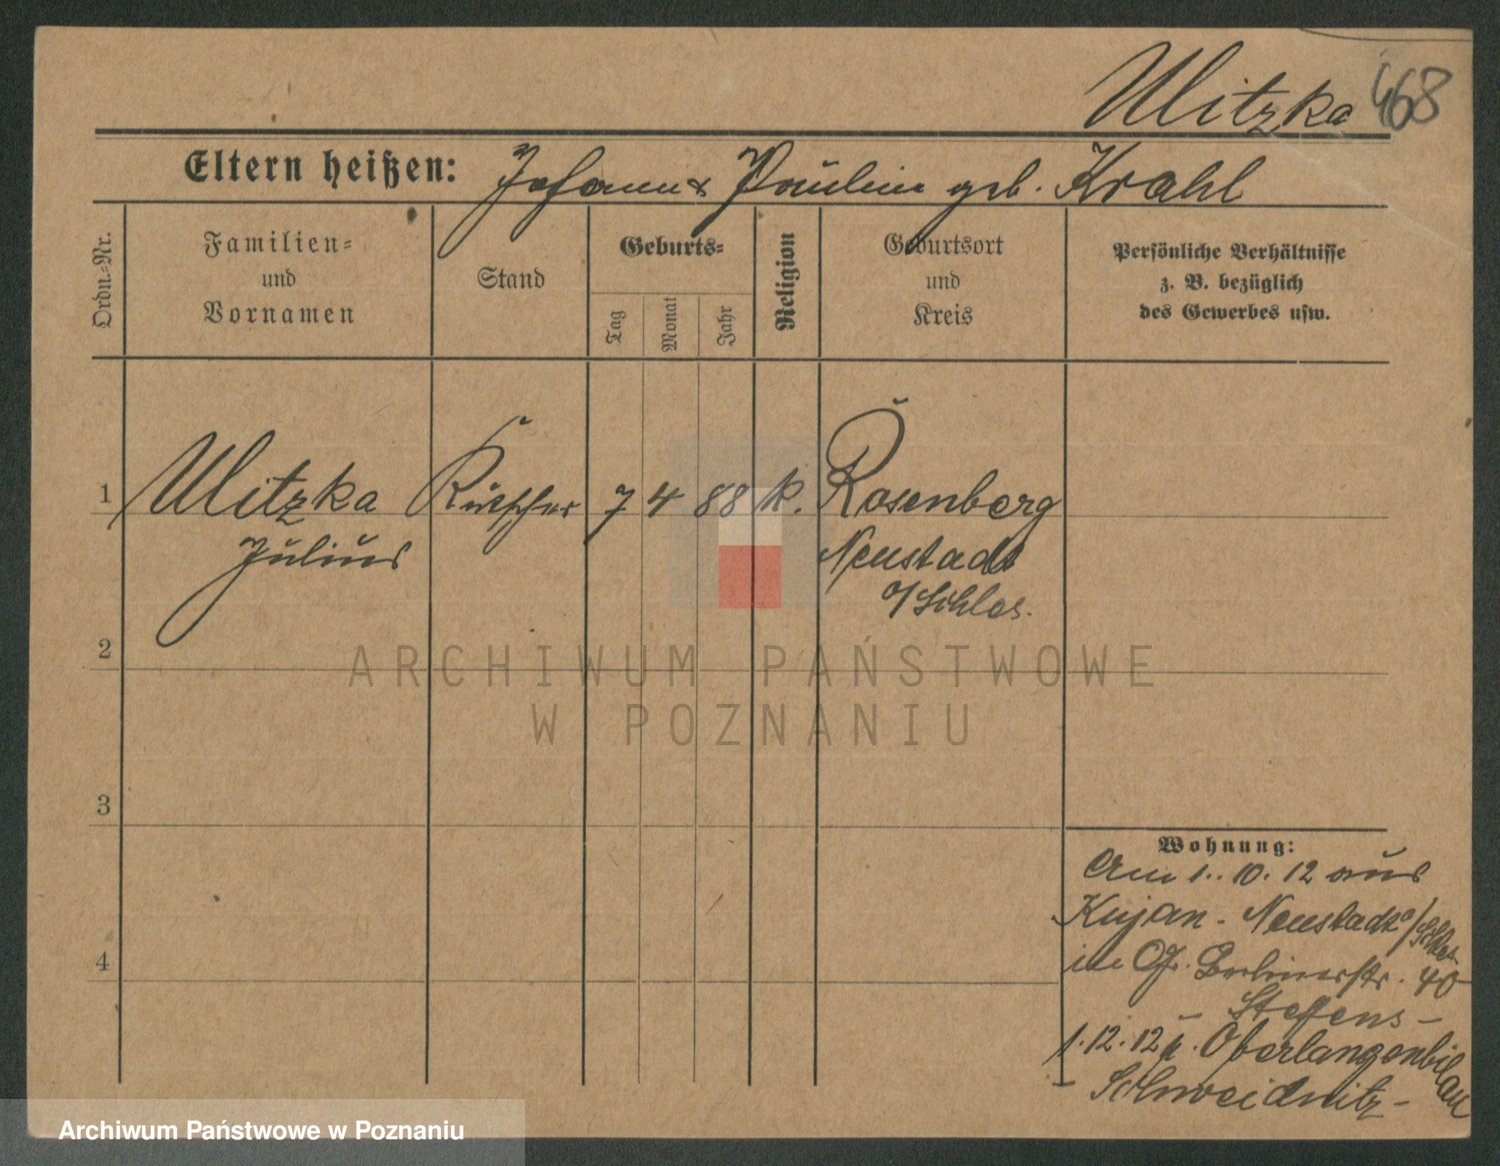 Ulitzka 468
Eltern heißen: Johann & Paulin geb. Krahl
Ordn.-Nr.
Familien-
und
Vornamen
Stand
Geburts-
Tag
Monat
Jahr
Religion
Geburtsort
und
Kreis
Persönliche Verhältnisse
z. B. bezüglich
des Gewerbes usw.
1 Ulitzka Kutscher 7 4 88 k. Rosenberg
Julius Neustadt
o/Schles.
2
3
4
Wohnung:
Am 1. 10. 12 aus
Kujan - Neustadt o/Schles.
in O/. Berlinerstr. 40
Steffens -
1.12.12 n. Oberlangenbielau
- Schweidnitz -
ARCHIWUM PAŃSTWOWE
W POZNANIU
Archiwum Państwowe w Poznaniu